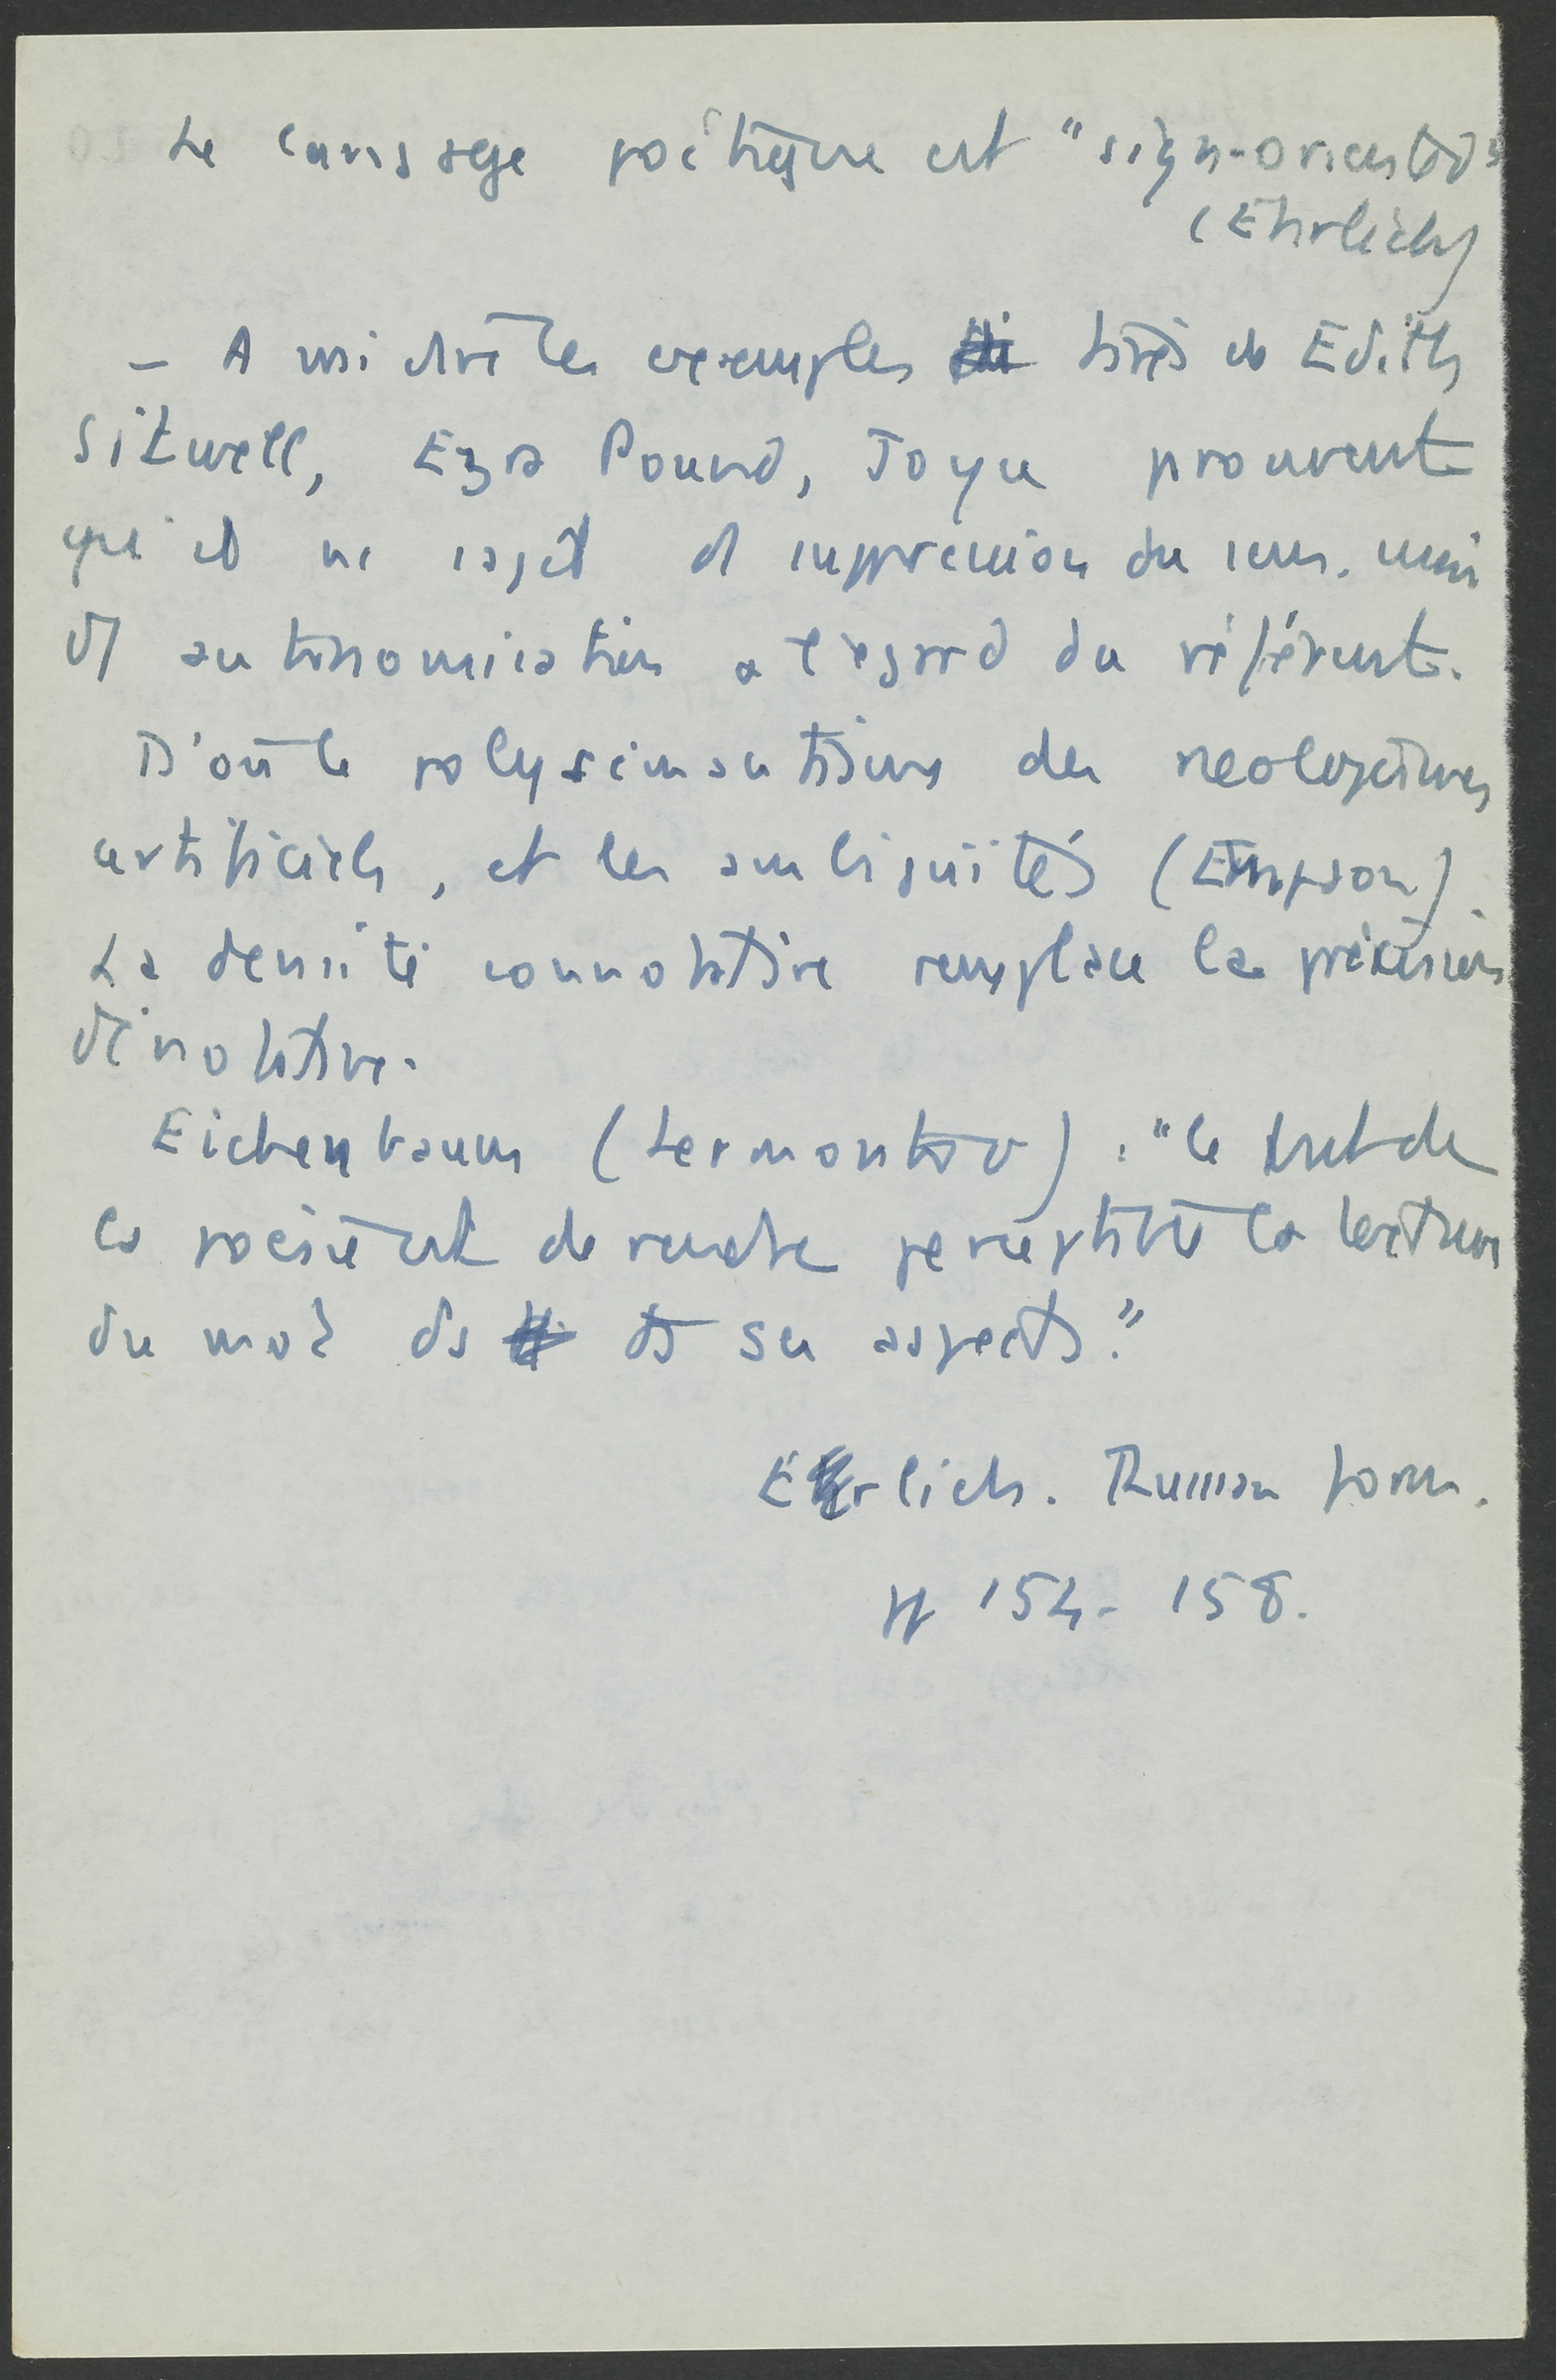 Le langage poétique est "sign-oriented"
(Ehrlich)
– A mi dire les exemples tirés de Edith
Sitwell, Ezra Pound, Joyce prouvent
qu'il ne s'agit d suppression du sens. mais
d' autonomisation a l'égard du référent.
D'où le polysémantisme des neologismes
artificiels, et les ambiguités (Empson).
La densité connotative remplace la précision
dénotative.
Eichenbaum (Lermontov) : "le but de
la poésie est de rendre perceptible la texture
du mot ds ts ses aspects."
Ehrlich. Russian form.
pp 154-158.